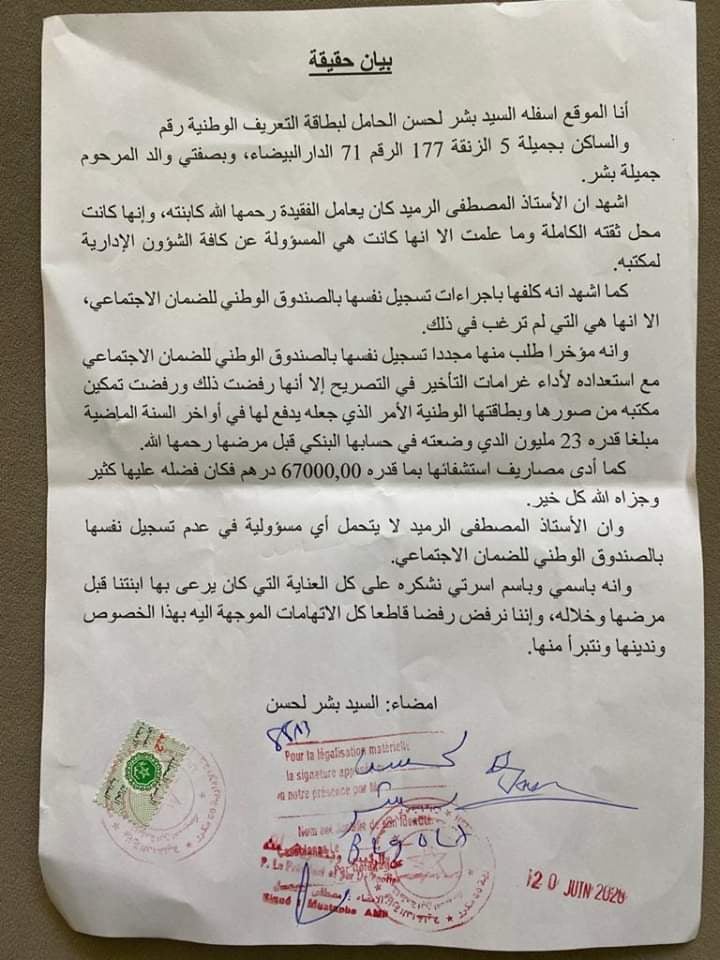 بيان حقيقة
أنا الموقع اسفله السيد بشر لحسن الحامل لبطاقة التعريف الوطنية رقم
والساكن بجميلة 5 الزنقة 177 الرقم 71 الدارالبيضاء، وبصفتي والد المرحوم
جميلة بشر.
اشهد ان الأستاذ المصطفى الرميد كان يعامل الفقيدة رحمها الله كابنته، وإنها كانت
محل ثقته الكاملة وما علمت الا انها كانت هي المسؤولة عن كافة الشؤون الإدارية
لمكتبه.
كما اشهد انه كلفها باجراءات تسجيل نفسها بالصندوق الوطني للضمان الاجتماعي،
الا انها هي التي لم ترغب في ذلك.
وانه مؤخرا طلب منها مجددا تسجيل نفسها بالصندوق الوطني للضمان الاجتماعي
مع استعداده لأداء غرامات التأخير في التصريح إلا أنها رفضت ذلك ورفضت تمكين
مكتبه من صورها وبطاقتها الوطنية الأمر الذي جعله يدفع لها في أواخر السنة الماضية
مبلغا قدره 23 مليون الدي وضعته في حسابها البنكي قبل مرضها رحمها الله.
كما أدى مصاريف استشفائها بما قدره 67000,00 درهم فكان فضله عليها كثير
وجزاه الله كل خير.
وان الأستاذ المصطفى الرميد لا يتحمل أي مسؤولية في عدم تسجيل نفسها
بالصندوق الوطني للضمان الاجتماعي.
وانه باسمي وباسم اسرتي نشكره على كل العناية التي كان يرعى بها ابنتنا قبل
مرضها وخلاله، وإننا نرفض رفضا قاطعا كل الاتهامات الموجهة اليه بهذا الخصوص
وندينها ونتبرأ منها.
امضاء: السيد بشر لحسن
Pour la légalisation matérielle
la signature
en notre présence par
P. Le
20 JUIN 2020